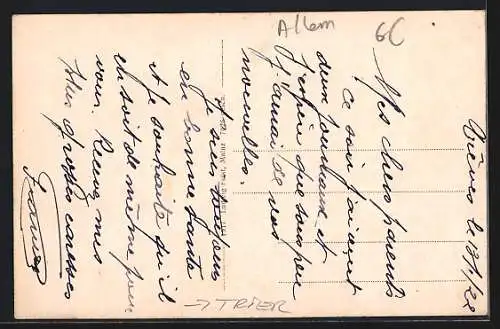 Allem
6C
Trèves le 13/1/22
Mes chers parents
Ce soir j'ai reçu
deux journaux et
j'espère que sous peu
j'aurai de vos
nouvelles.
Je suis toujours
en bonne santé
et je souhaite qu'il
en soit de même pour
vous. Recevez mes
plus grosses caresses
→ TRIER